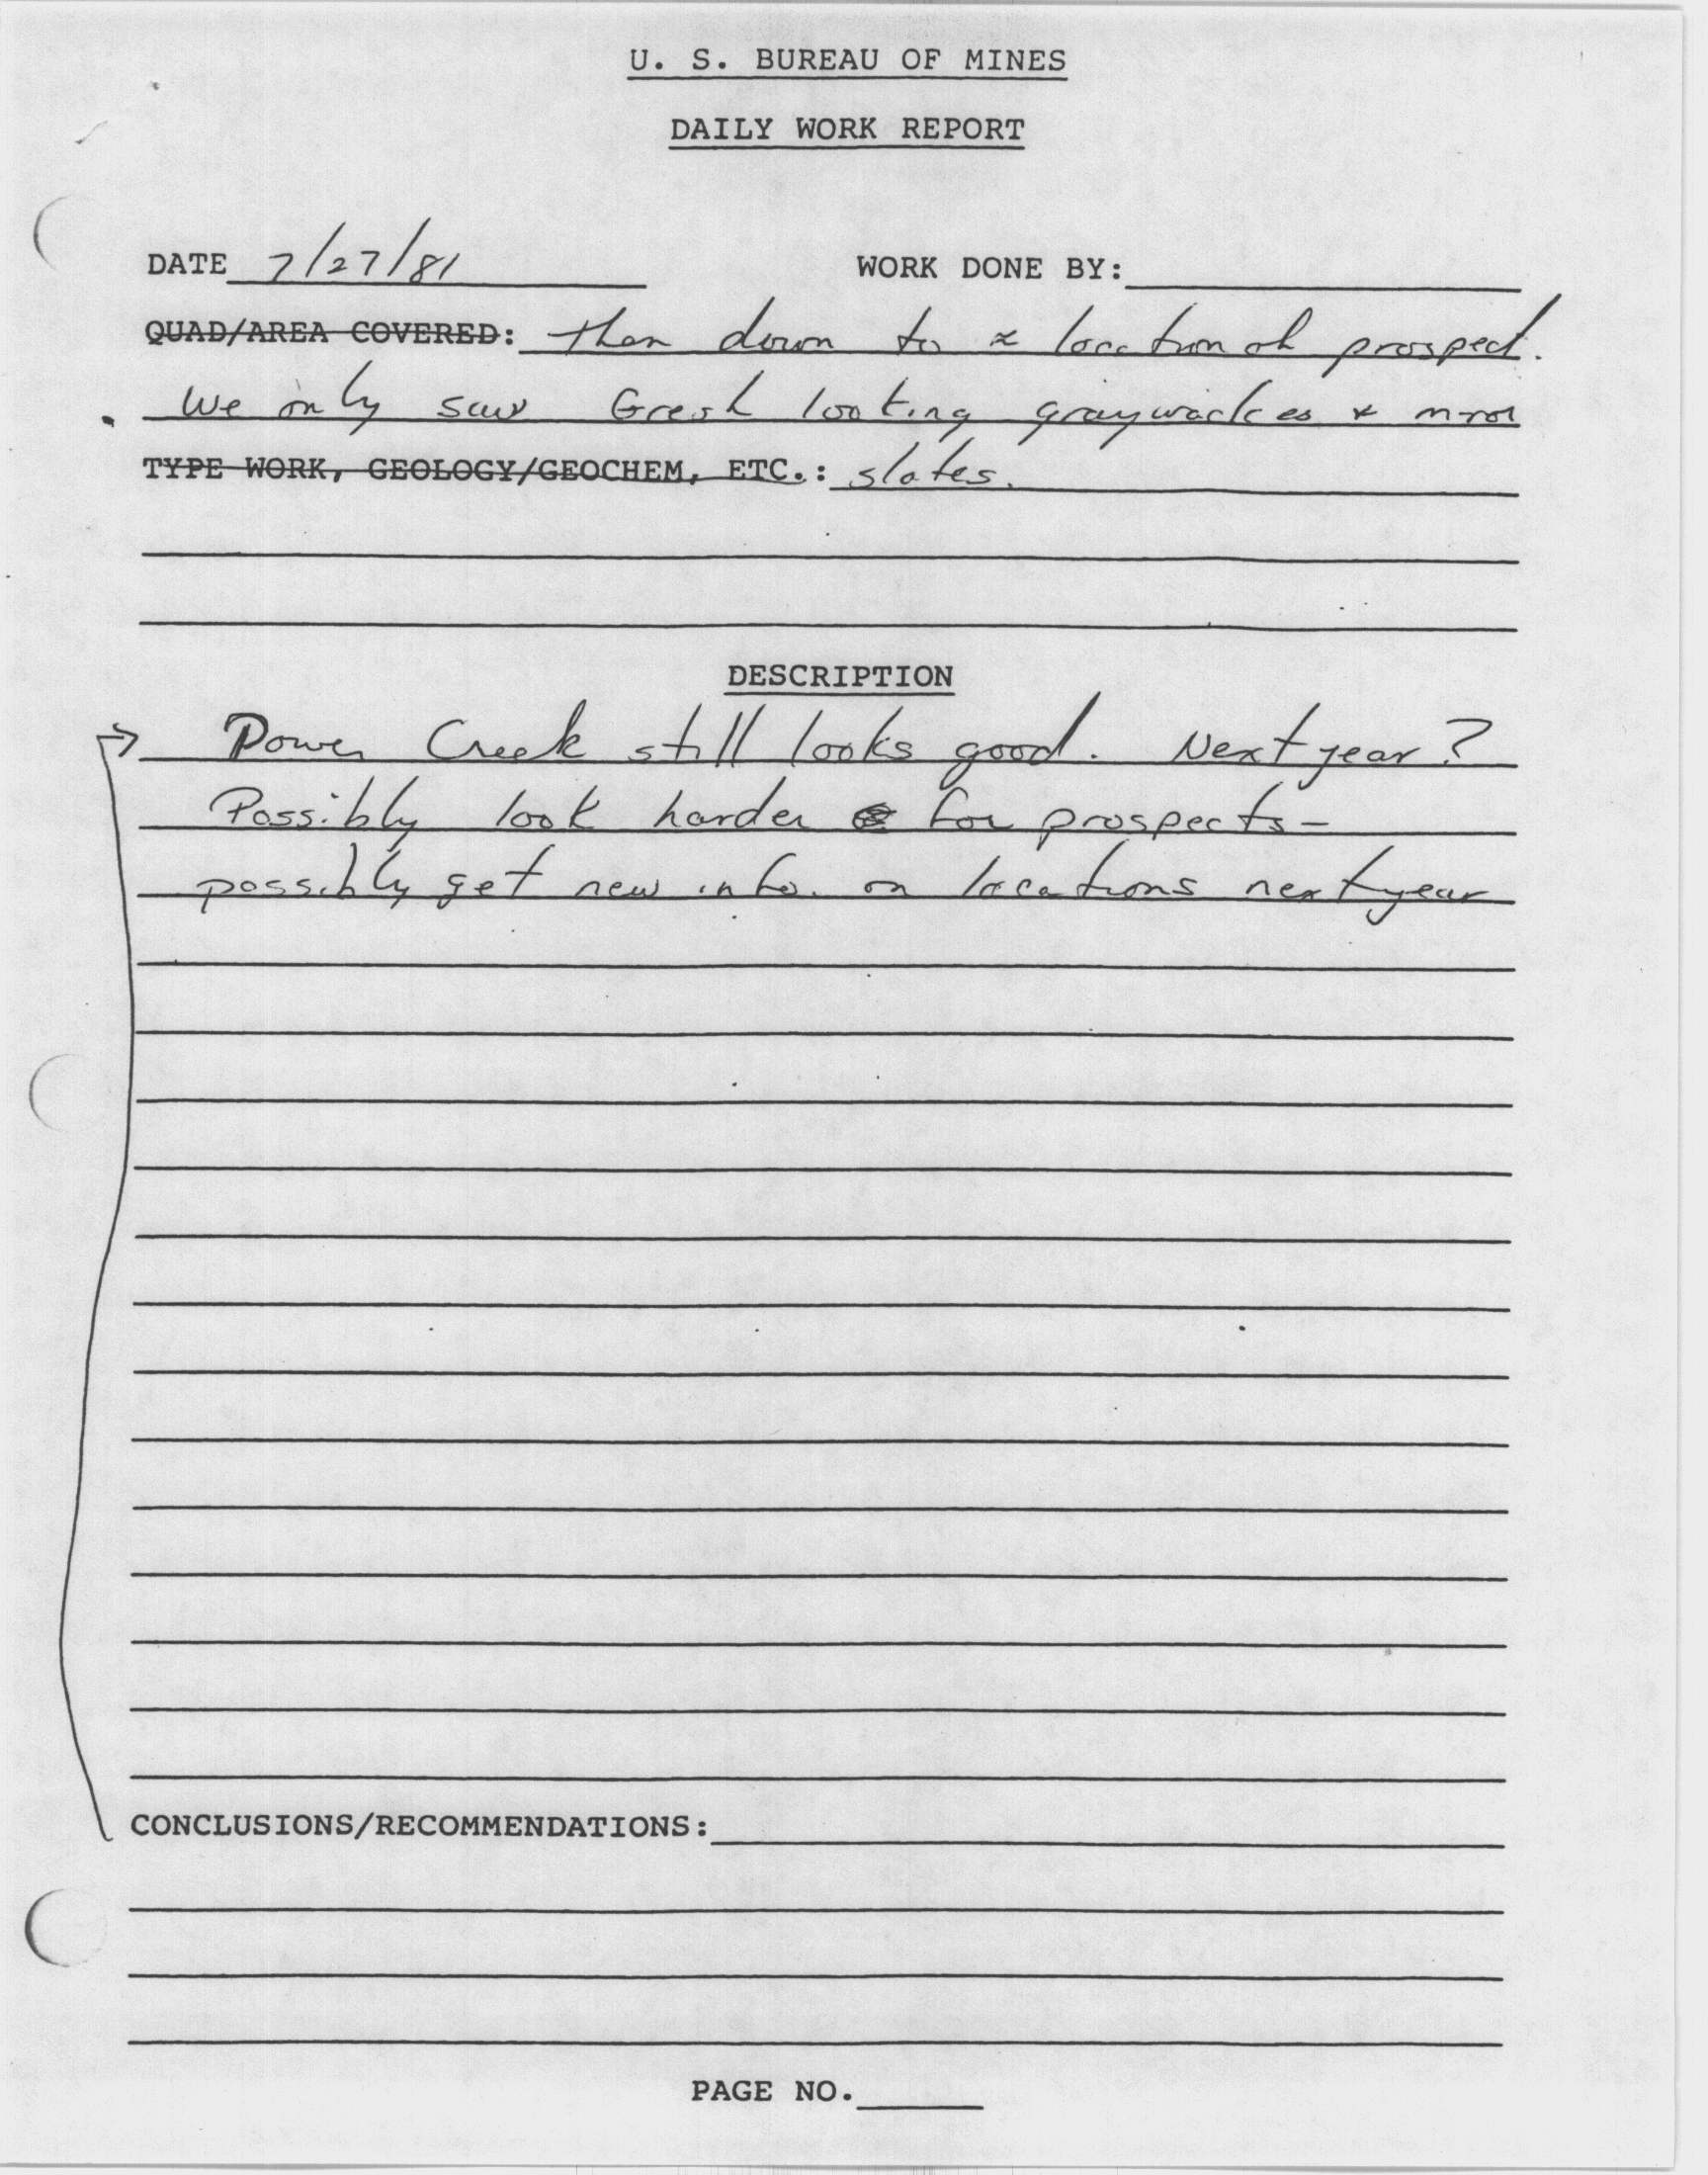 U. S. BUREAU OF MINES
DAILY WORK REPORT
DATE 7/27/81 WORK DONE BY:
QUAD/AREA COVERED: then down to ≈ location of prospect.
We only saw fresh looking graywackes & minor
TYPE WORK, GEOLOGY/GEOCHEM, ETC.: slates.
DESCRIPTION
→ Power Creek still looks good. Next year?
Possibly look harder for prospects -
possibly get new info. on locations next year
CONCLUSIONS/RECOMMENDATIONS:
PAGE NO.